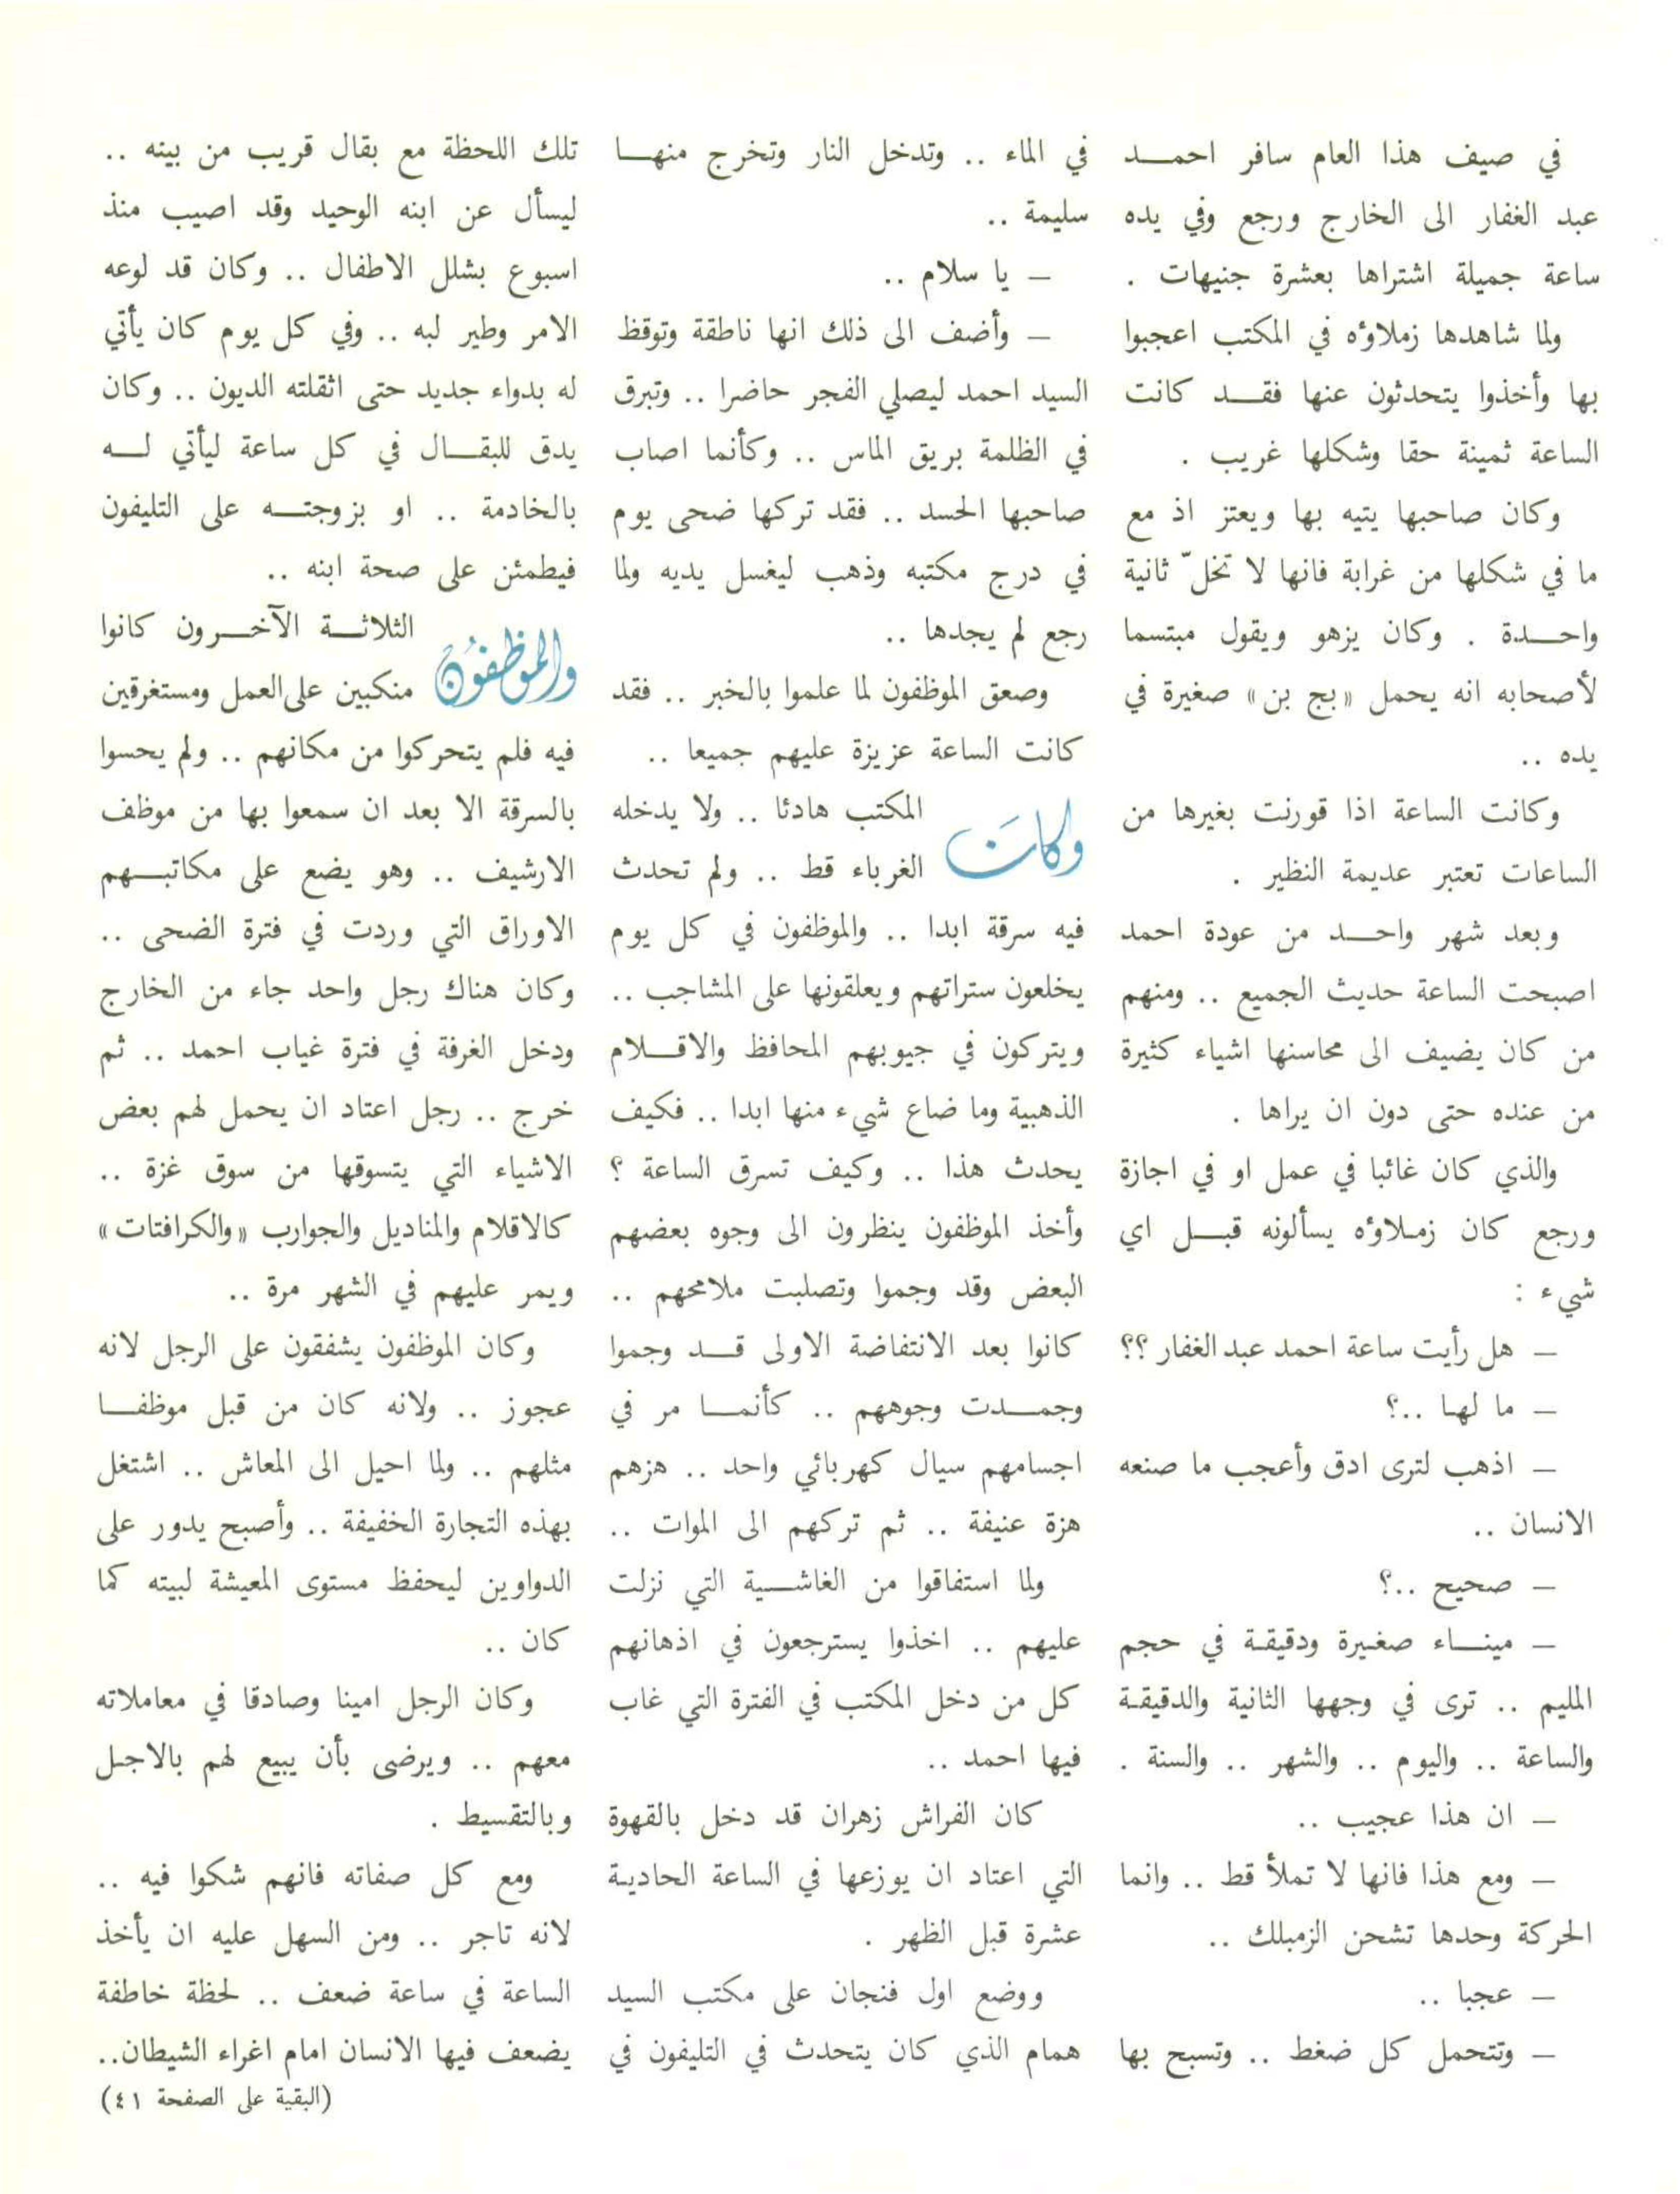 في صيف هذا العام سافر احمد
عبد الغفار الى الخارج ورجع وفي يده
ساعة جميلة اشتراها بعشرة جنيهات .
ولما شاهدها زملاؤه في المكتب اعجبوا
بها وأخذوا يتحدثون عنها فقد كانت
الساعة ثمينة حقا وشكلها غريب .
وكان صاحبها يتيه بها ويعتز اذ مع
ما في شكلها من غرابة فانها لا تخلّ ثانية
واحدة . وكان يزهو ويقول مبتسما
لأصحابه انه يحمل «بج بن» صغيرة في
يده ..
وكانت الساعة اذا قورنت بغيرها من
الساعات تعتبر عديمة النظير .
وبعد شهر واحد من عودة احمد
اصبحت الساعة حديث الجميع .. ومنهم
من كان يضيف الى محاسنها اشياء كثيرة
من عنده حتى دون ان يراها .
والذي كان غائبا في عمل او في اجازة
ورجع كان زملاؤه يسألونه قبل اي
شيء :
– هل رأيت ساعة احمد عبد الغفار ؟؟
– ما لها ..؟
– اذهب لترى ادق وأعجب ما صنعه
الانسان ..
– صحيح ..؟
– ميناء صغيرة ودقيقة في حجم
المليم .. ترى في وجهها الثانية والدقيقة
والساعة .. واليوم .. والشهر .. والسنة .
– ان هذا عجيب ..
– ومع هذا فانها لا تملأ قط .. وانما
الحركة وحدها تشحن الزمبلك ..
– عجبا ..
– وتتحمل كل ضغط .. وتسبح بها
في الماء .. وتدخل النار وتخرج منها
سليمة ..
– يا سلام ..
– وأضف الى ذلك انها ناطقة وتوقظ
السيد احمد ليصلي الفجر حاضرا .. وتبرق
في الظلمة بريق الماس .. وكأنما اصاب
صاحبها الحسد .. فقد تركها ضحى يوم
في درج مكتبه وذهب ليغسل يديه ولما
رجع لم يجدها ..
وصعق الموظفون لما علموا بالخبر .. فقد
كانت الساعة عزيزة عليهم جميعا ..
وكانَت المكتب هادئا .. ولا يدخله
الغرباء قط .. ولم تحدث
فيه سرقة ابدا .. والموظفون في كل يوم
يخلعون ستراتهم ويعلقونها على المشاجب ..
ويتركون في جيوبهم المحافظ والاقلام
الذهبية وما ضاع شيء منها ابدا .. فكيف
يحدث هذا .. وكيف تسرق الساعة ؟
وأخذ الموظفون ينظرون الى وجوه بعضهم
البعض وقد وجموا وتصلبت ملامحهم ..
كانوا بعد الانتفاضة الاولى قد وجموا
وجمدت وجوههم .. كأنما مر في
اجسامهم سيال كهربائي واحد .. هزهم
هزة عنيفة .. ثم تركهم الى الموات ..
ولما استفاقوا من الغاشية التي نزلت
عليهم .. اخذوا يسترجعون في اذهانهم
كل من دخل المكتب في الفترة التي غاب
فيها احمد ..
كان الفراش زهران قد دخل بالقهوة
التي اعتاد ان يوزعها في الساعة الحادية
عشرة قبل الظهر .
ووضع اول فنجان على مكتب السيد
همام الذي كان يتحدث في التليفون في
تلك اللحظة مع بقال قريب من بيته ..
ليسأل عن ابنه الوحيد وقد اصيب منذ
اسبوع بشلل الاطفال .. وكان قد لوعه
الامر وطير لبه .. وفي كل يوم كان يأتي
له بدواء جديد حتى اثقلته الديون .. وكان
يدق للبقال في كل ساعة ليأتي له
بالخادمة .. او بزوجته على التليفون
فيطمئن على صحة ابنه ..
والموَظفوُن الثلاثة الآخرون كانوا
منكبين على العمل ومستغرقين
فيه فلم يتحركوا من مكانهم .. ولم يحسوا
بالسرقة الا بعد ان سمعوا بها من موظف
الارشيف .. وهو يضع على مكاتبهم
الاوراق التي وردت في فترة الضحى ..
وكان هناك رجل واحد جاء من الخارج
ودخل الغرفة في فترة غياب احمد .. ثم
خرج .. رجل اعتاد ان يحمل لهم بعض
الاشياء التي يتسوقها من سوق غزة ..
كالاقلام والمناديل والجوارب «والكرافتات»
ويمر عليهم في الشهر مرة ..
وكان الموظفون يشفقون على الرجل لانه
عجوز .. ولانه كان من قبل موظفا
مثلهم .. ولما احيل الى المعاش .. اشتغل
بهذه التجارة الخفيفة .. وأصبح يدور على
الدواوين ليحفظ مستوى المعيشة لبيته كما
كان ..
وكان الرجل امينا وصادقا في معاملاته
معهم .. ويرضى بأن يبيع لهم بالاجل
وبالتقسيط .
ومع كل صفاته فانهم شكوا فيه ..
لانه تاجر .. ومن السهل عليه ان يأخذ
الساعة في ساعة ضعف .. لحظة خاطفة
يضعف فيها الانسان امام اغراء الشيطان..
(البقية على الصفحة ٤١)